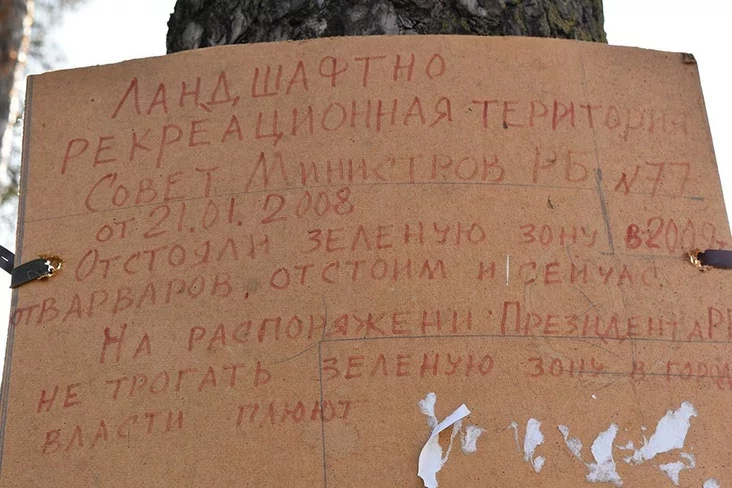 ЛАНД,ШАФТНО
РЕКРЕАЦИОННАЯ ТЕРИТОРИЯ
СОВЕТ МИНИСТРОВ РБ N77
ОТ 21.01.2008
ОТСТОЯЛИ ЗЕЛЕНУЮ ЗОНУ В 2008
ОТ ВАРВАРОВ, ОТСТОИМ И СЕЙЧАС.
НА РАСПОРЯЖЕНИ ПРЕЗИДЕНТА РБ
НЕ ТРОГАТЬ ЗЕЛЕНУЮ ЗОНУ В ГОРОД
ВЛАСТИ ПЛЮЮТ